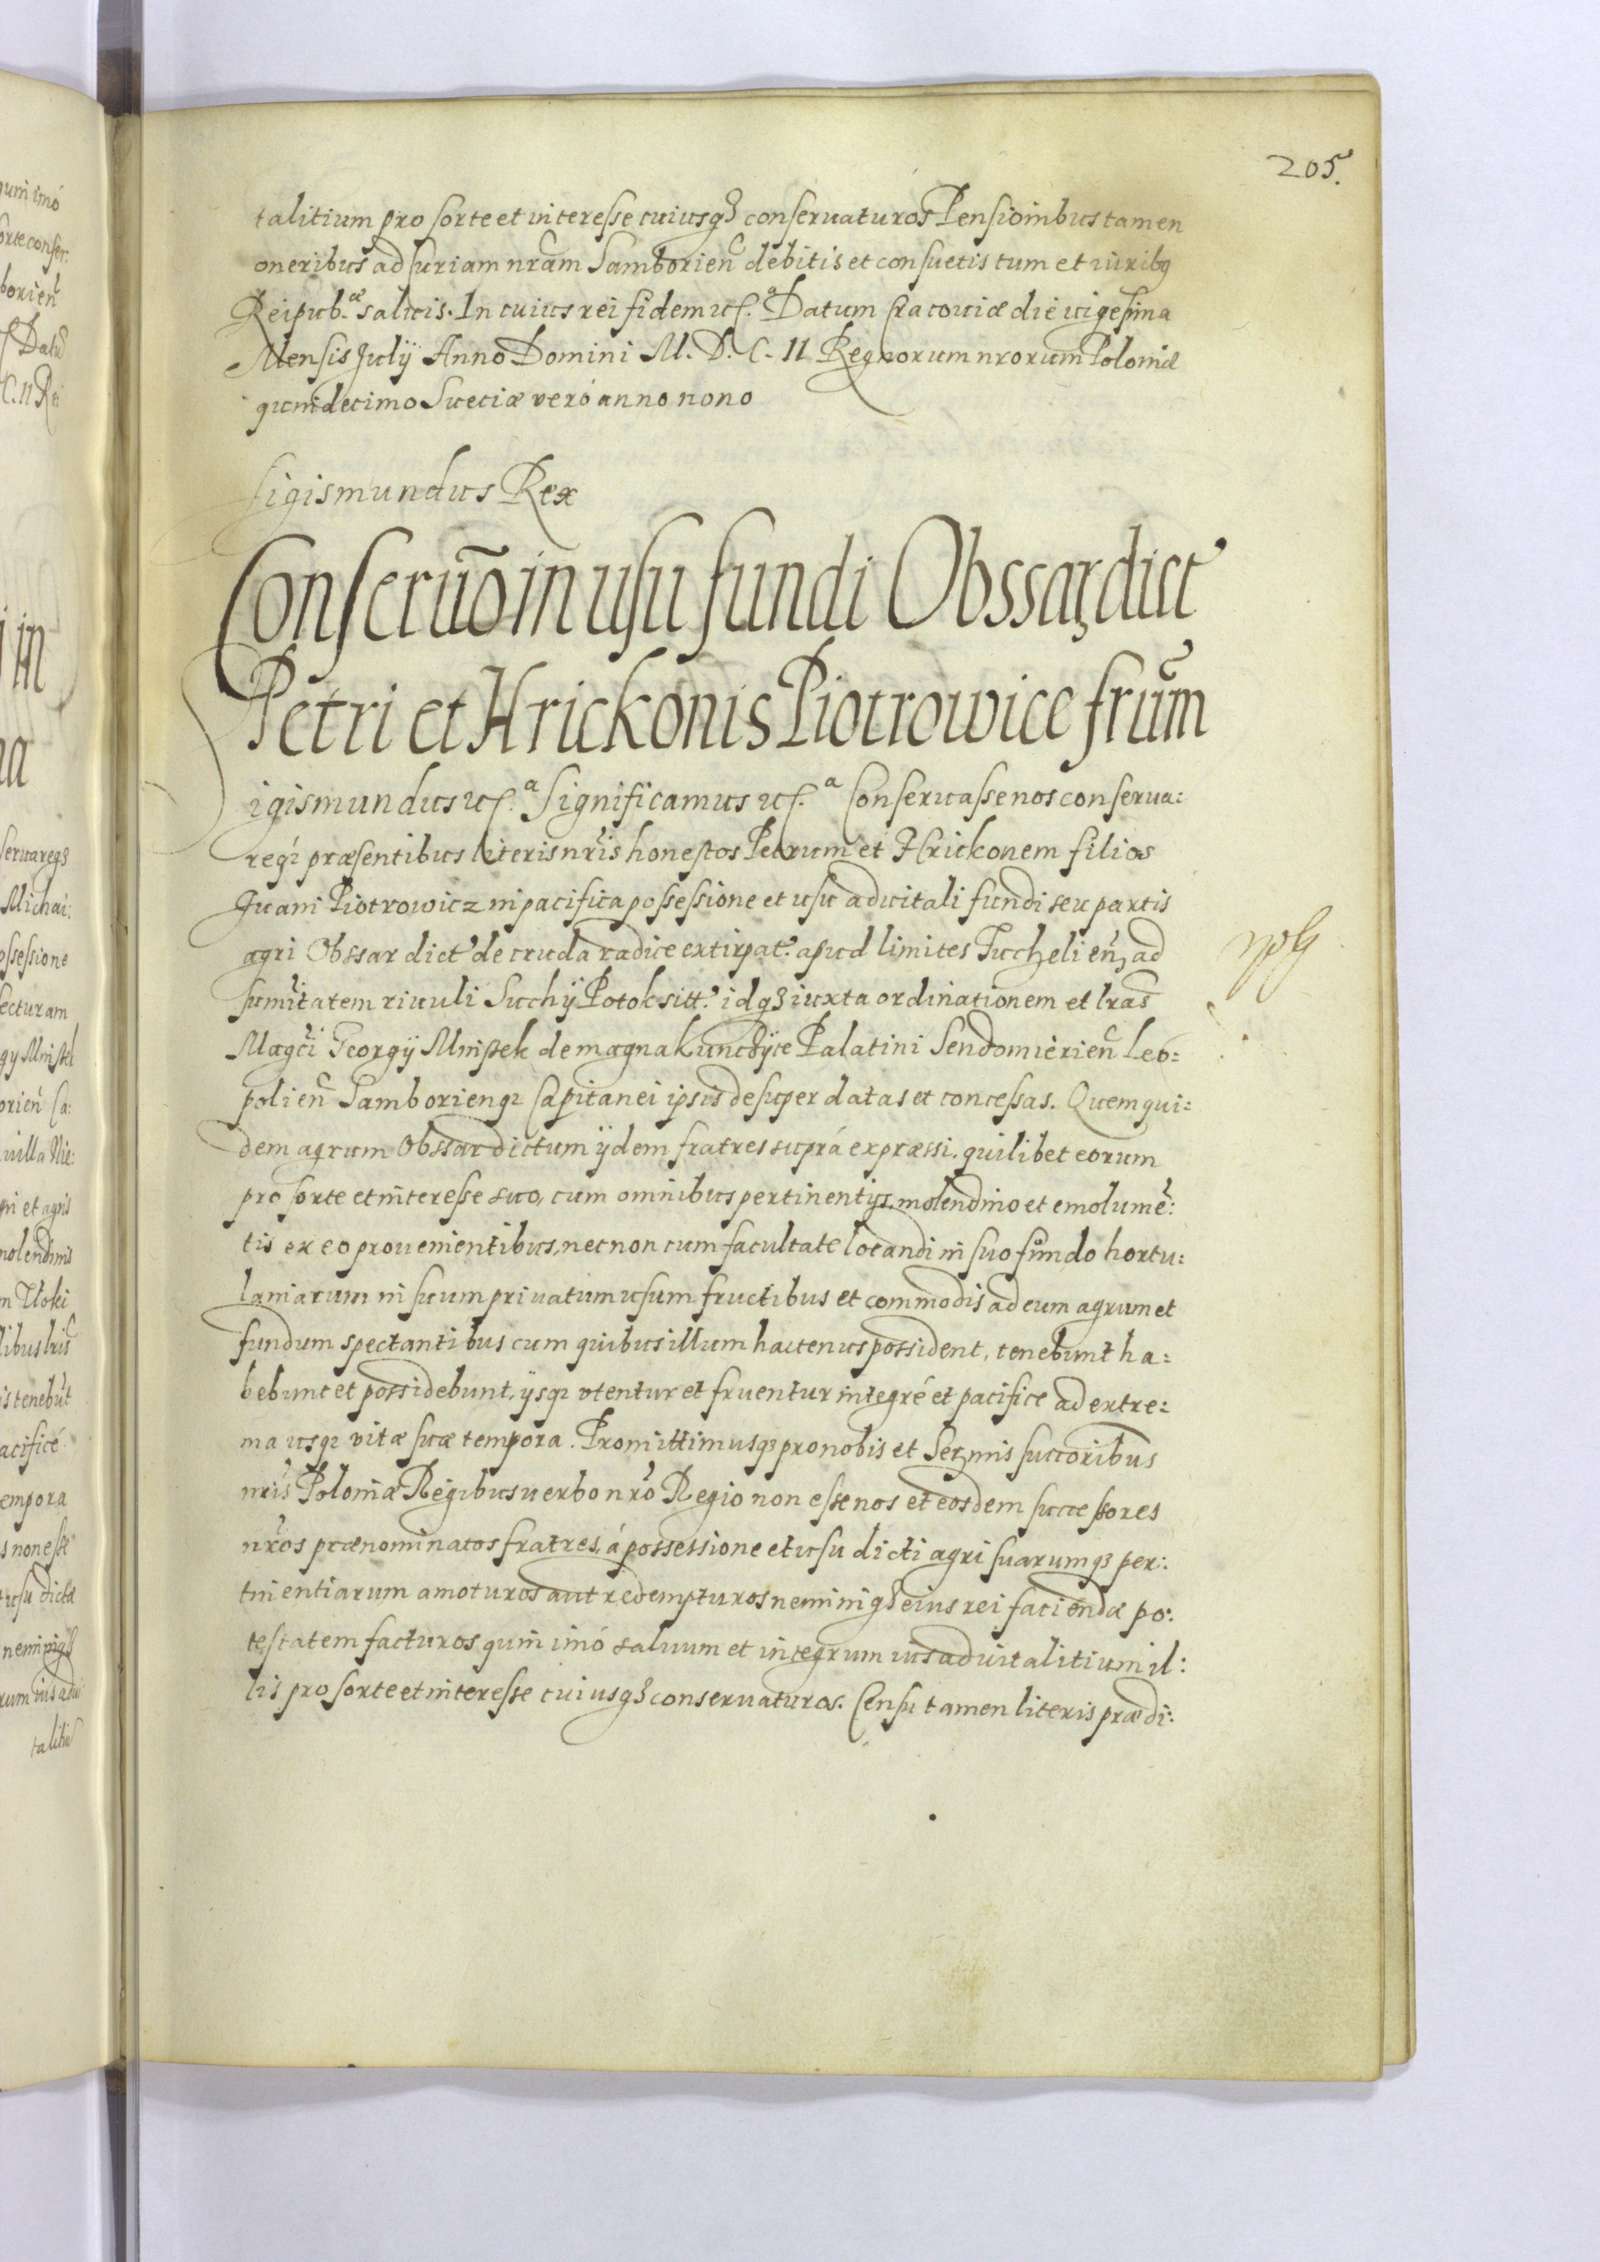 205.
talitium pro sorte et interesse cuiusq3 conservaturos Pensionibus tamen
oneribus ad Curiam nram Samborien debitis et consuetis tum et iuribq
Reipub.æ salvis. In cuius rei fidem etc.a Datum Cracoviæ die vigesima
Mensis July Anno Domini M. D. C. II Regnorum nrorum Poloniæ
quindecimo Sueciæ veró anno nono
Sigismundus Rex
Conseruõ in usu fundi Obssar dict
Petri et Hrickonis Piotrowice frum
Sigismundus etc.a Significamus etc.a Conseruasse nos conserua:
reqz præsentibus literis nris honestos Petrum et Hrickonem filios
Juani Piotrowicz in pacifica possessione et usu aduitali fundi seu partis
agri Obssar dict de cruda radice extirpat. apud limites Tucheлien, ad
sumitatem riuuli Suchÿ Potok sitt. idq3 iuxta ordinationem et lras
Magci Georgÿ Mnistek de magna Kunczÿce Palatini Sendomirien Leo=
polien Samborienqz Capitanei ipsis desuper datas et concessas. Quem qui=
dem agrum Obssar dictum ÿdem fratres suprá expræssi. quilibet eorum
pro sorte et interesse suo, cum omnibus pertinentÿs, molendino et emolume:
tis ex eo prouenientibus, nec non cum facultate locandi in suo fundo hortu:
laniarum in suum priuatum usum fructibus et commodis ad eum agrum et
fundum spectantibus cum quibus illum hactenus possident, tenebunt ha=
bebunt et possidebunt, ÿsqz utentur et fruentur integré et pacifice ad extre=
ma usqz vitæ suæ tempora. Promittimusq3 pro nobis et Sermis succoribus
nris Poloniæ Regibus verbo nro Regio non esse nos et eosdem successores
nros prænominatos fratres, á possessione et usu dicti agri suarumq3 per:
tinentiarum amoturos aut redempturos neminiq3 eius rei faciendæ po:
testatem facturos quin imó saluum et integrum ius aduitalitium il:
lis pro sorte et interesse cuiusq3 conseruaturos. Censu tamen literis prædi: